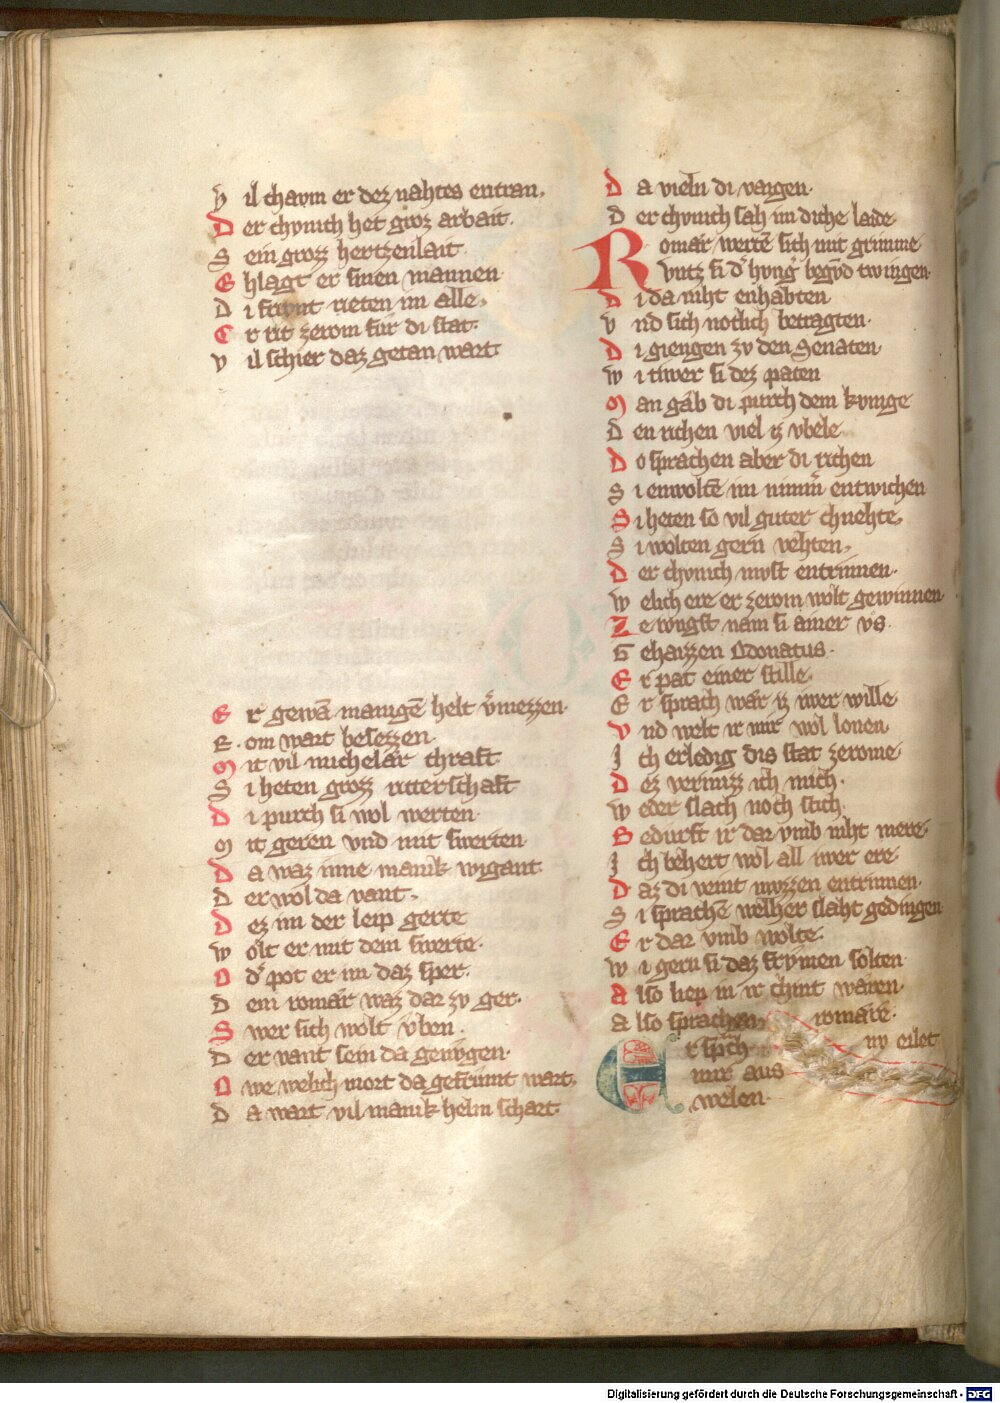 V il chavm er dez nahtes entran.
D er chvnich het groz arbait.
S ein grozz hertzenlait
E hlagt er sinen mannen
D i frvnt rieten im alle.
E r rit zerom fur di stat.
V il schier daz getan wart
E r gewā manigē helt v̄mezzen.
R om wart besezzen.
M it vil michelär chraft
S i heten grozz ritterschaft
D i purch si wol werten.
M it geren vnd mit swerten
D a waz inne manik wigant.
D er wol da vant.
D ez im der leip gerte
W olt er mit dem swerte.
O d' pot er im daz sper.
D em romär waz dar zv ger.
S wer sich wolt vben.
D er vant sein da genvgen.
O we welich mort da gefrumt wart.
D a wart vil manik helm schart.
D a vieln di vaigen.
D er chvnich sah im diche laide
R omär wertē sich mit grimme
Vntz si d' hvng' begvd twingen.
D i da niht enhabten
V nd sich notlich betragten.
D i giengen zv den Senaten.
W i tiwer si dez paten
M an gäb di purch dem kvnige
D en richen viel iz vbele.
D o sprachen aber di richen
S i enwoltē im nimm' entwichen
S i heten so vil guter chnehte.
S i wolten gern vehten.
D er chvnich must entrinnen.
W elich ere er zerom wolt gewinnen
Z e ivngst nam si ainer vs
G ehaizzen Odonatus.
E r pat einer stille.
E r sprach wär iz iwer wille
V nd welt ir mir wol lonen
I ch erledig dis stat zerome
D ez vermizz ich mich.
W eder slach noch stich.
B edurft ir dar vmb niht mere.
I ch behert wol all iwer ere.
D az di veint mvzzen entrinnen.
S i sprachē welher slaht gedingen
E r dar vmb wolte.
W i gern si daz frvmen solten
A lso liep in ir chint wären.
A lso sprachen romäre.
E r sp'ch nv eilet
mir aus
welen.
Digitalisierung gefördert durch die Deutsche Forschungsgemeinschaft - DFG